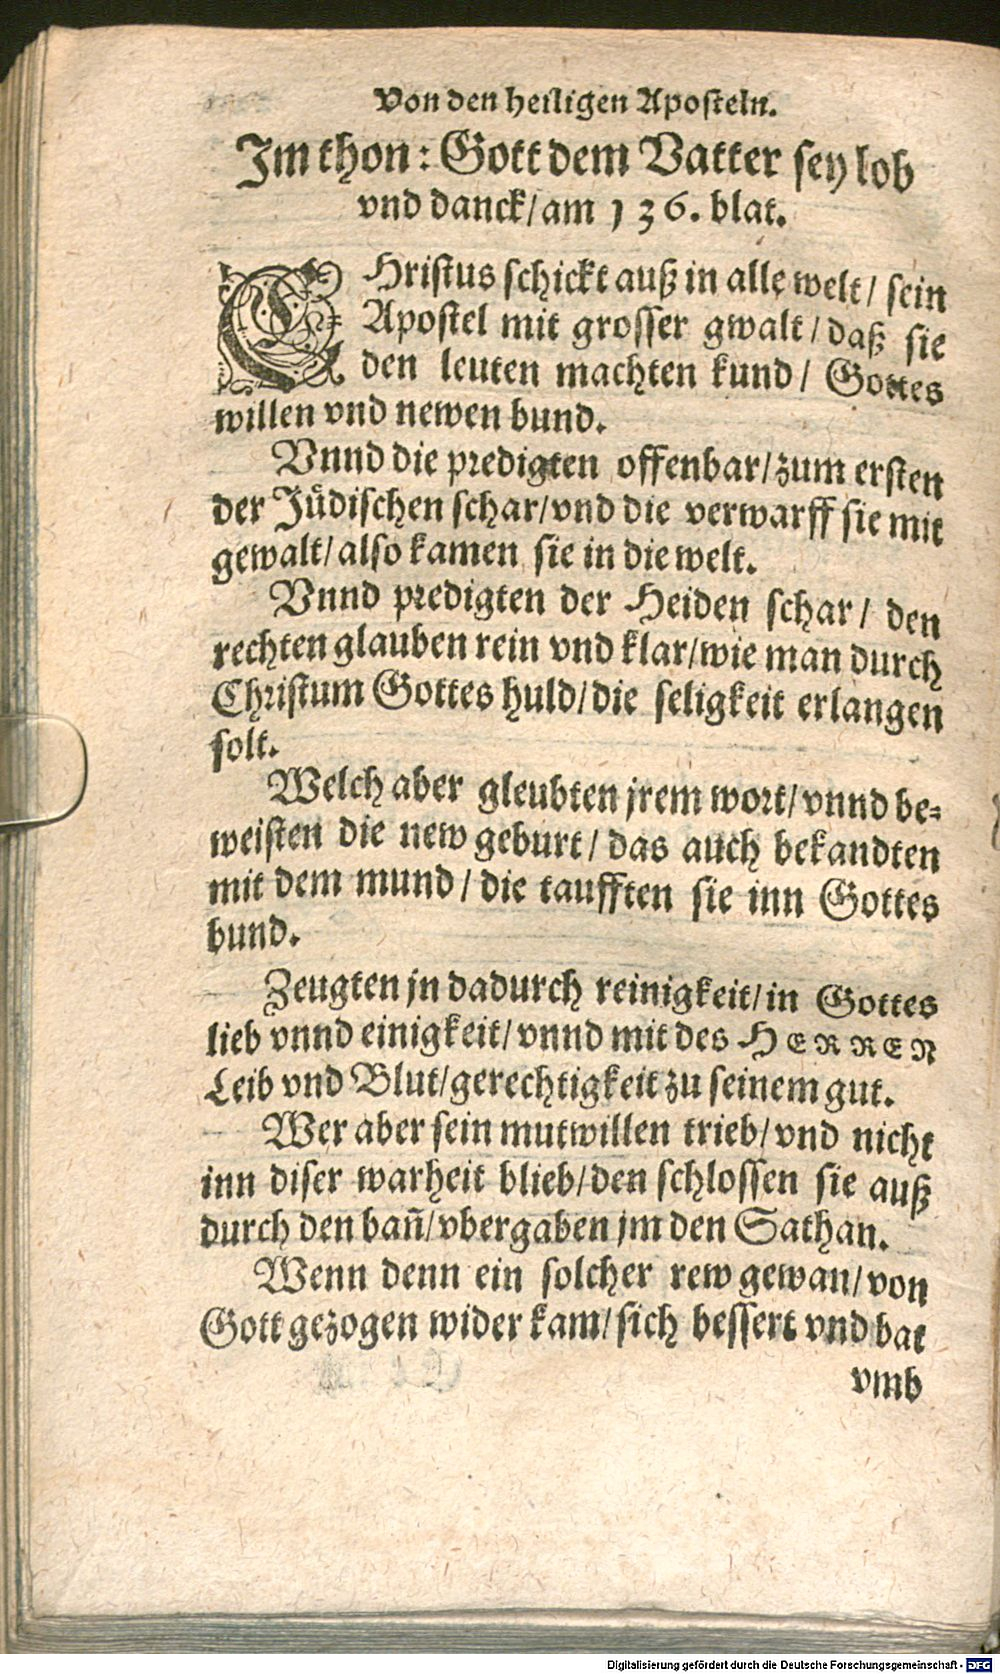 Von den heiligen Aposteln.
Im thon: Gott dem Vatter sey lob
vnd danck/ am 136. blat.
CHristus schickt auß in alle welt/ sein
Apostel mit grosser gwalt/ daß sie
den leuten machten kund/ Gottes
willen vnd newen bund.
Vnnd die predigten offenbar/ zum ersten
der Jüdischen schar/ vnd die verwarff sie mit
gewalt/ also kamen sie in die welt.
Vnnd predigten der Heiden schar/ den
rechten glauben rein vnd klar/ wie man durch
Christum Gottes huld/ die seligkeit erlangen
solt.
Welch aber gleubten jrem wort/ vnnd be=
weisten die new geburt/ das auch bekandten
mit dem mund/ die taufften sie inn Gottes
bund.
Zeugten jn dadurch reinigkeit/ in Gottes
lieb vnnd einigkeit/ vnnd mit des HERREN
Leib vnd Blut/ gerechtigkeit zu seinem gut.
Wer aber sein mutwillen trieb/ vnd nicht
inn diser warheit blieb/ den schlossen sie auß
durch den bañ/ vbergaben jm den Sathan.
Wenn denn ein solcher rew gewan/ von
Gott gezogen wider kam/ sich bessert vnd bat
vmb
Digitalisierung gefördert durch die Deutsche Forschungsgemeinschaft - DFG